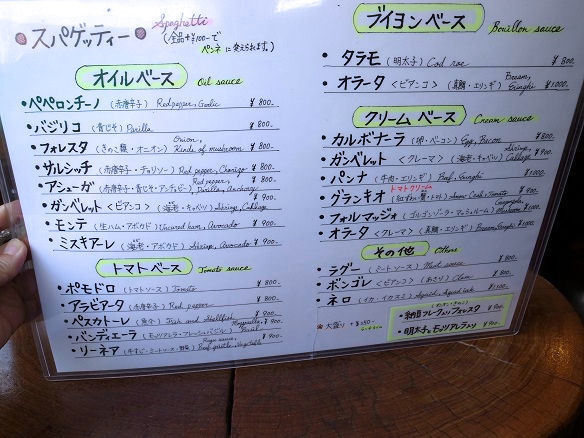 スパゲッティー Spaghetti
(全品+¥100-で
ペンネに変えられます。)
オイルベース Oil sauce
・ペペロンチーノ (赤唐辛子) Red peper, Garlic ¥800.
・バジリコ (青じそ) Perilla ¥800.
・フォレスタ (きのこ類・オニオン) Onion, Kinds of mushroom ¥800.
・サルシッチ (赤唐辛子・チョリソー) Red peper, Chorizo ¥800.
・アシューガ (赤唐辛子・青じそ・アンチョビー) Red peper, Perilla, Anchovy ¥800.
・ガンベレット <ビアンコ> (海老・キャベツ) Shrimp, Cabbage ¥900.
・モンテ (生ハム・アボカド) Uncured ham, Avocado ¥900.
・ミスキアーレ (海老・アボカド) Shrimp, Avocado ¥900.
トマトベース Tomato sauce
・ポモドロ (トマトソース) Tomato ¥800.
・アラビアータ (赤唐辛子) Red peper ¥800.
・ペスカトーレ (魚介) Fish and Shellfish ¥900.
・バンディエーラ (モッツァレラ・フレッシュバジル) Mozzarella, Basil ¥900.
・リーネア (牛すじ・ミートソース・野菜) Ragu sauce, Beef gristle, Vegetable ¥900.
ブイヨンベース Bouillon sauce
・タラモ (明太子) Cod roe ¥800.
・オラータ <ビアンコ> (真鯛・エリンギ) Bream, Eringhi ¥1000.
クリームベース Cream sauce
・カルボナーラ (卵・ベーコン) Egg, Bacon ¥800.
・ガンベレット <クレーマ> (海老・キャベツ) Shrimp, Cabbage ¥900.
・パンナ (牛肉・エリンギ) Beef, Eringhi ¥1000.
・グランキオ トマトクリーム (紅ずわい蟹・トマト) Snow Crab, Tomato ¥900.
・フォルマッジォ (ゴルゴンゾーラ・マッシュルーム) Gorgonzola, Mushroom ¥1000.
・オラータ <クレーマ> (真鯛・エリンギ) Bream, Eringhi ¥1000.
その他 Others
・ラグー (ミートソース) Meat sauce ¥800.
・ボンゴレ <ビアンコ> (あさり) Clam ¥800.
・ネロ (イカ・イカスミ) Squid, Squid ink ¥1100.
・納豆クレーマフォレスタ ¥900.
・明太子モッツァレラ ¥900.
大盛り +¥250-